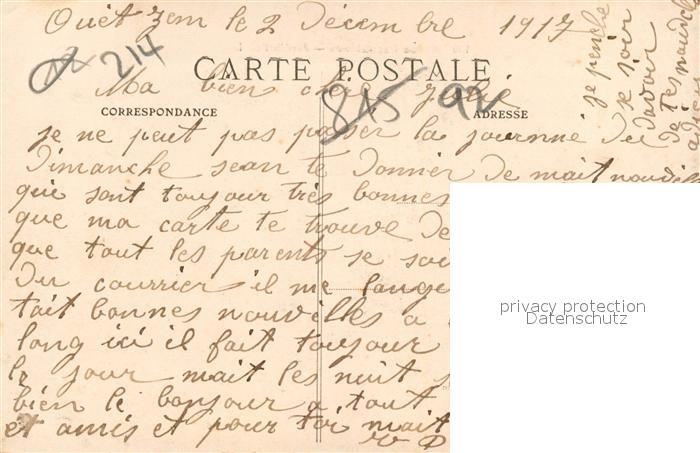 Ouèt Zem le 2 Décembre 1917
214
CARTE POSTALE
Ma bien cher
815 92
CORRESPONDANCE
ADRESSE
je ne peut pas passer la journné du
Dimanche sean te donner de mait nouvelle
qui sont toujour très bonnes
que ma carte te trouve de
que tout les parents se soi
du courrier il me lange
tait bonnes nouvelles a
long ici il fait toujour
le jour mait les nuit
bien le bonjour a tout
et amis et pour toi mait
je penche
se soir
davoir
de tes nouvel
privacy protection
Datenschutz